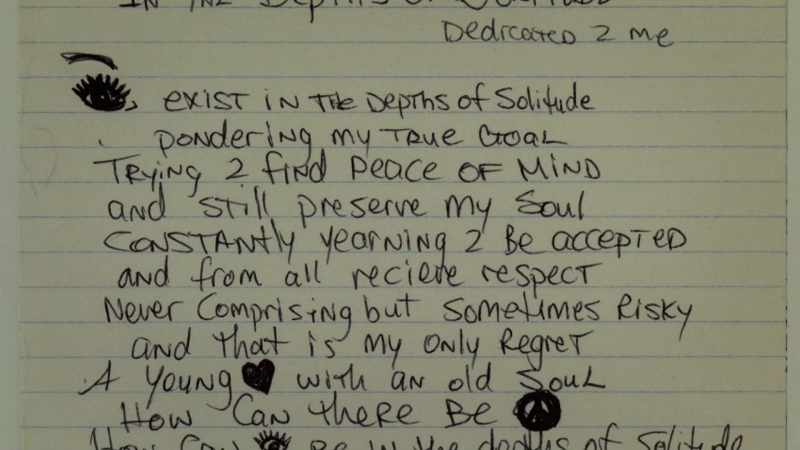 IN THE Depths of Solitude
Dedicated 2 me
exist in the Depths of Solitude
pondering my True Goal
Trying 2 find peace of Mind
and still preserve my Soul
CONSTANTly yearning 2 Be accepted
and from all recieve respect
Never Comprising but sometimes Risky
and that is my only Regret
A Young ♥ with an old Soul
How Can there Be ☮
How Can Be in the depths of Solitude